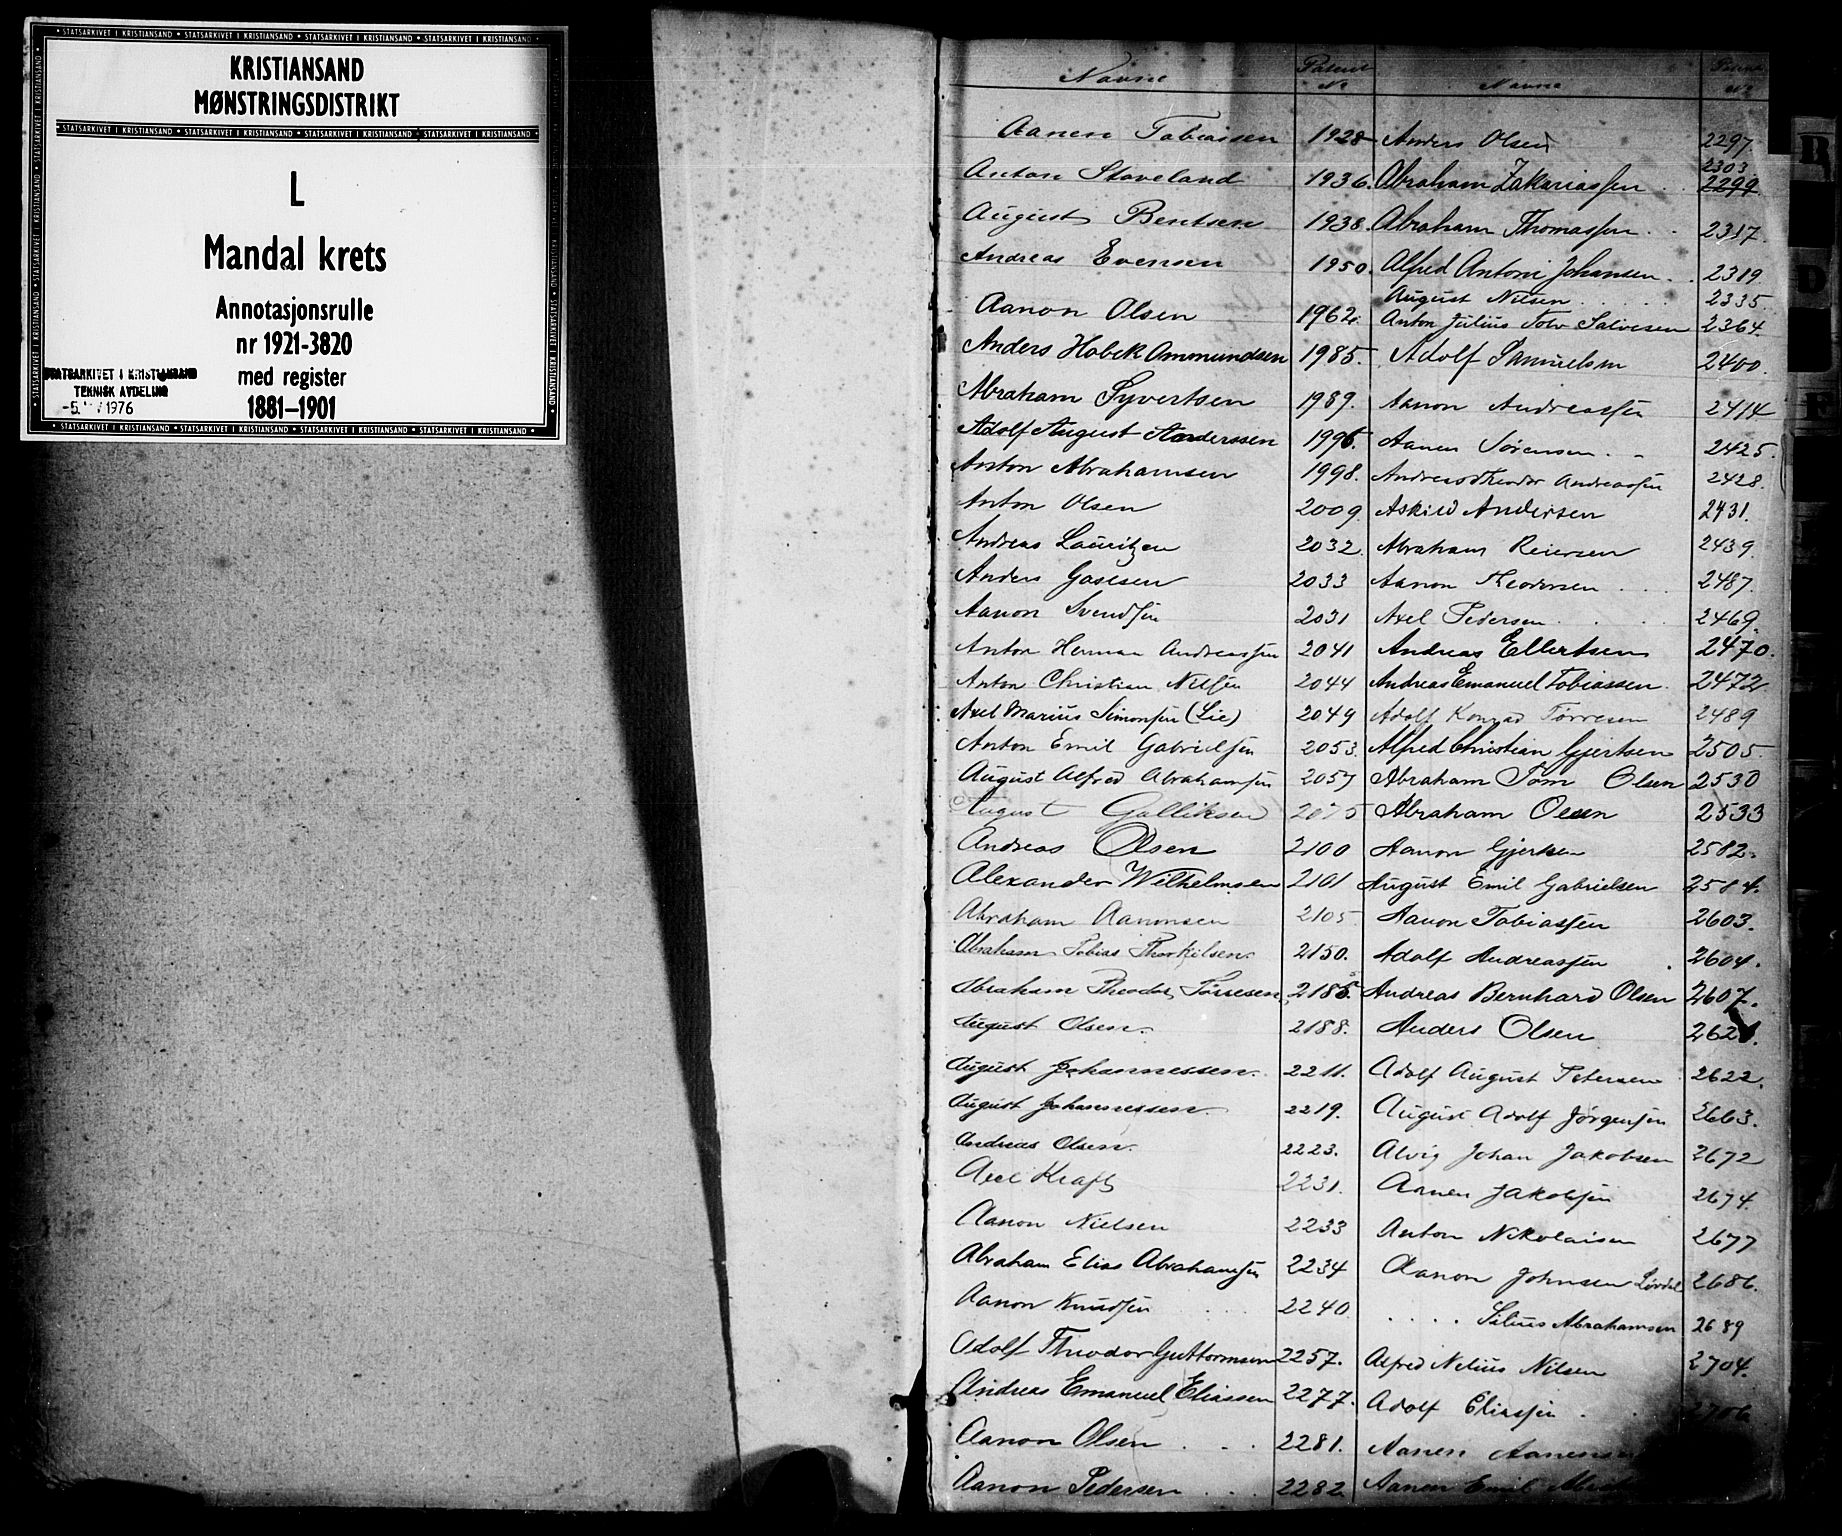 KRISTIANSAND
MØNSTRINGSDISTRIKT
L
Mandal krets
Annotasjonsrulle
nr 1921-3820
med register
1881–1901
STATSARKIVET I KRISTIANSAND
TEKNISK AVDELING
1976
Navne Patent Nr
Aanen Tobiassen 1928
Anton Stoveland 1936.
August Bentsen 1938.
Andreas Evensen 1950
Aanon Olsen 1962.
Anders Hobek Ommundsen 1985.
Abraham Syvertsen 1989.
Adolf August Anderssen 1996.
Anton Abrahamsen 1998.
Anton Olsen 2009
Andreas Lauritzen 2032.
Anders Gasesen 2033
Aanon Svendsen 2031
Anton Herman Andreassen 2041
Anton Christian Nilsen 2044
Axel Marius Simonsen (Lie) 2049
Anton Emil Gabrielsen 2053.
August Alfred Abrahamsen 2057
August Gulliksen 2075
Andreas Olsen 2100
Alexander Wilhelmsen 2101
Abraham Aanonsen 2105
Abraham Tobias Thorkilsen. 2150.
Abraham Theodor Tørresen, 2185.
August Olsen. 2188.
August Johannessen. 2211.
August Johannessen. 2219.
Andreas Olsen. 2223.
Axel Kraft 2231.
Aanon Nielsen 2233
Abraham Elias Abrahamsen 2234
Aanon Knudsen 2240
Adolf Theodor Guttormsen 2257.
Andreas Emanuel Eliassen 2277.
Aanon Olsen . . . 2281.
Aanon Pedersen . . . 2282
Navne Patent Nr
Anders Olsen 2297.
2303
Abraham Zakariassen . . 2299
Abraham Thomassen . . 2317.
Alfred Antoni Johansen . . 2319.
August Nilsen . . . . 2335.
Anton Julius Tolv Salvesen 2364.
Adolf Samuelsen 2400.
Aanon Andreassen 2414
Aanen Sørensen . . 2425.
Andreas Theodor Andreassen 2428.
Askild Andersen 2431.
Abraham Reiersen 2439.
Aanon Theodorsen . . . . 2487.
Axel Pedersen . . . . 2469.
Andreas Ellertsen 2470.
Andreas Emanuel Tobiassen. 2472
Adolf Konrad Tørresen 2489
Alfred Christian Gjertsen 2505
Abraham Tom Olsen 2530
Abraham Olsen 2533
Aanon Gjertsen 2582.
August Emil Gabrielsen 2584.
Aanon Tobiassen 2603.
Adolf Andreassen . 2604.
Andreas Bernhard Olsen 2607.
Anders Olsen 2621.
Adolf August Petersen 2622.
August Adolf Jørgensen 2663.
Alvig Johan Jakobsen 2672
Aanen Jakobsen 2674.
Anton Nikolaisen 2677
Aanon Johnsen Lørdal 2686.
. . . . Silius Abrahamsen 2689
Alfred Nelius Nilsen 2704.
Adolf Eliassen . . 2706
Aanen Aanensen
Aanen Emil